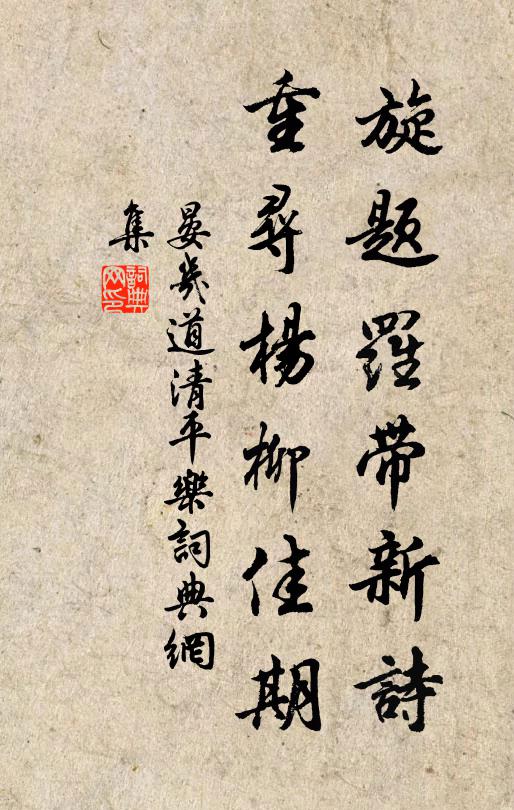 旋題羅帶新詩
重尋楊柳佳期
晏幾道清平樂詞典網
集
詞典
网印